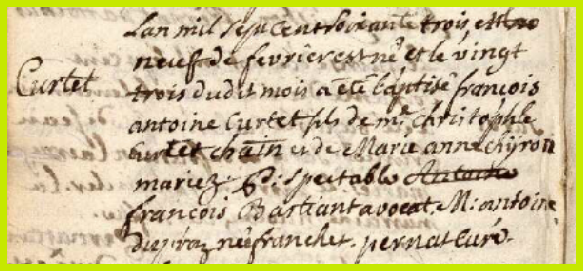 Lan mil sept cent soixante trois et le
neuf de fevrier est né et le vingt
Curtet
trois dudit mois a été baptisé françois
antoine Curtet fils de mr christophle
Curtet et de Marie anne chÿron
mariez. P: spectable Antoine
françois Bastian avocat. M: antoine
née franchet. pernat Curé.